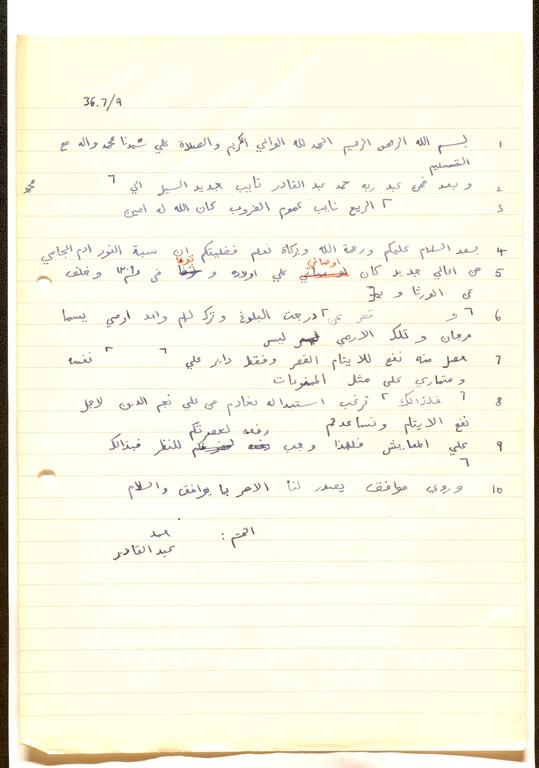 36.7/9
١ بسم الله الرحمن الرحيم الحمد لله الوالي الكريم والصلاة علي سيدنا محمد واله مع
التسليم
٢ و بعد فمن عبد ربه حمد عبد القادر نايب جديد السيل الي ٦
٣ ٢ الريع نايب عموم الغروب كان الله له امين
٤ بعد السلام عليكم ورحمة الله وبركاة نعلم فضليتكم ان سبة النور ادم الجامعي
٥ من اهالي جديد كان اوصاني علي اولاده و توفا في وخلف
من الورثا و
٦ ٦ و قصر عن ٢ درجت البلوغ وترك لهم واحد ارصي يسما
مرجان و تلك الارصي ليس
٧ حصل منه نفع للايتام القصر وفقط داير علي ٦ ٢ نفسه
و متماري علي مثل
٨ ٦ فلذالك ٢ ترغب استبداله بخادم من علي نجم الدين لاجل
نفع الايتام وتساعدهم
٩ علي المعايش فلهذا وجب رفعه لحضرتكم للنظر فبذالك
٦
١٠ وروي موافق يصدر لنا الامر بما يوافق والسلام
الختم : حمد
عبد القادر